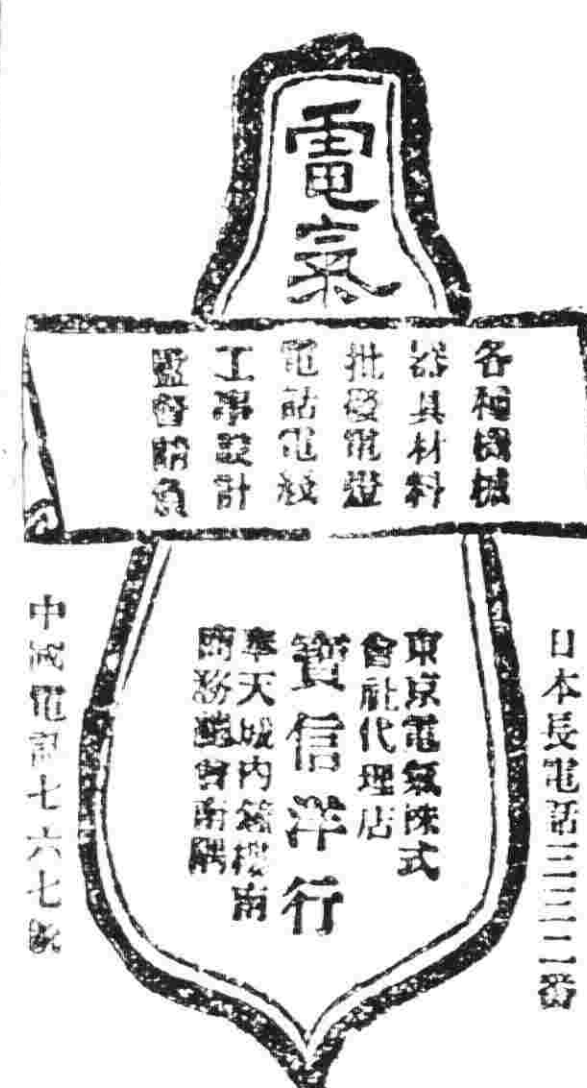 電氣
各種機械
器具材料
批發電燈
電話電綫
工事設計
監督請負
日本長電話三三二番
東京電氣株式
會社代理店
寶信洋行
奉天城內鐘樓南
商務總會南隔
中國電話七六七號